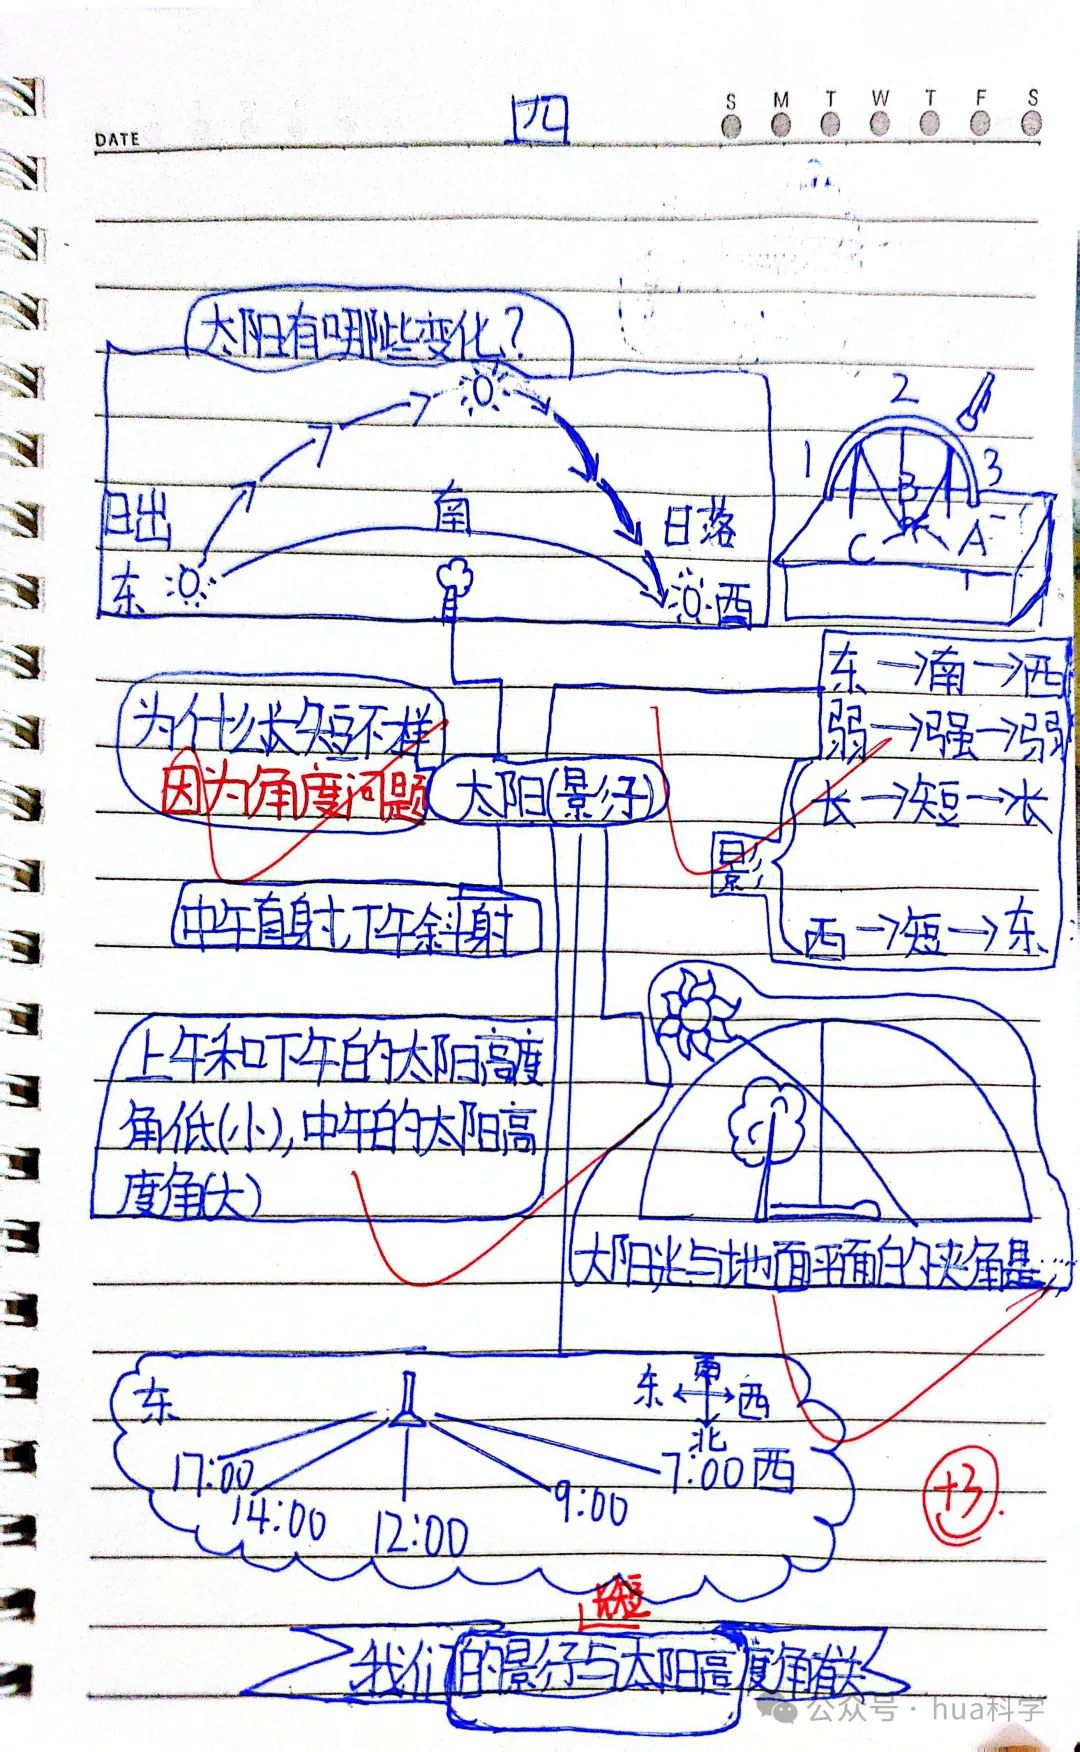 四
DATE
S M T W T F S
太阳有哪些变化?
2
1
3
B
C
A
南
日出
日落
东
西
东→南→西
弱→强→弱
长→短→长
影
西→短→东
为什么长短不一样
因为角度问题
太阳(景仔)
中午直射,下午斜射
上午和下午的太阳高度
角低(小),中午的太阳高
度角(大)
太阳光与地面平面的夹角是……
东
东
南
西
北
17:00
14:00
12:00
9:00
7:00西
+3
长短
我们的景仔与太阳高度角有关
公众号·hua科学